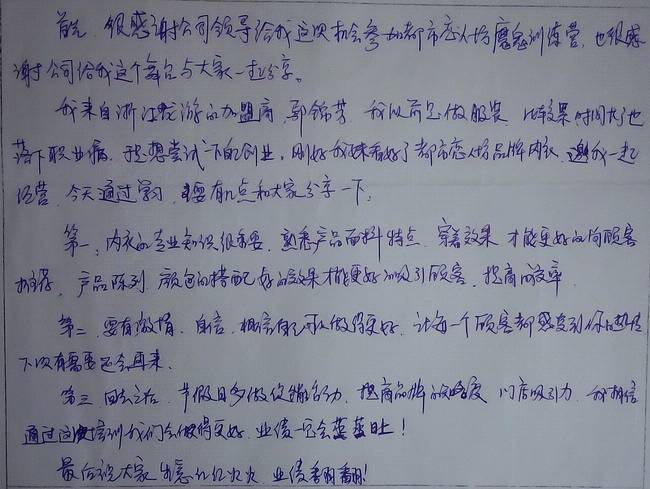 首先，很感谢公司领导给我这次机会参加都市恋人坊魔鬼训练营，也很感
谢公司给我这个舞台与大家一起分享。
我来自浙江龙游的加盟商，郭锦芳，我以前是做服装，时间长了也
落下职业病，我想尝试一下自己创业，刚好我妹看好了都市恋人坊品牌内衣，邀我一起
经营，今天通过学习，主要有几点和大家分享一下。
第一，内衣的专业知识很重要，熟悉产品面料特点，穿着效果，才能更好的向顾客
推荐，产品陈列，颜色的搭配，好的效果才能更好的吸引顾客，提高效率
第二，要有激情，自信，相信自己可以做得更好，让每一个顾客都感受到你的热情
下次有需要还会再来。
第三，回去之后，节假日多做促销活动，提高品牌的知名度，门店吸引力，我相信
通过这次培训我们会做得更好，业绩一定会蒸蒸日上！
最后祝大家生意红红火火，业绩翻翻！